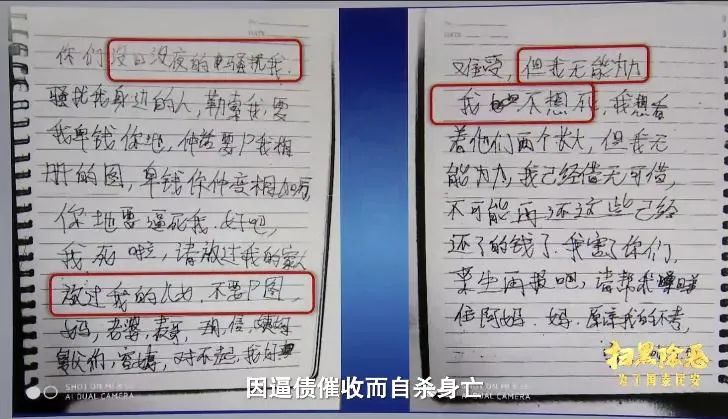 你们没日没夜的骚扰我.
骚扰我身边的人,勒索我,要
我单钱你地,仲话要P我相
册的图,单钱你仲变相加
你地要逼死我.好吧,
我死啦,请放过我的家人
放过我的,不要P图,
妈,老婆,
对不起,我好
难受,但我无能为力
我不想死,我想看
着他们两个长大,但我无
能为力,我已经借无可借,
不可能再还这些已经
还了的钱了.我害了你们,
来生再报吧,请帮我
住阿妈.妈.原谅我的不孝,
SHOT ON
AI DUAL CAMERA
SHOT ON
AI DUAL CAMERA
扫黑除恶
为了国泰民安
因逼债催收而自杀身亡